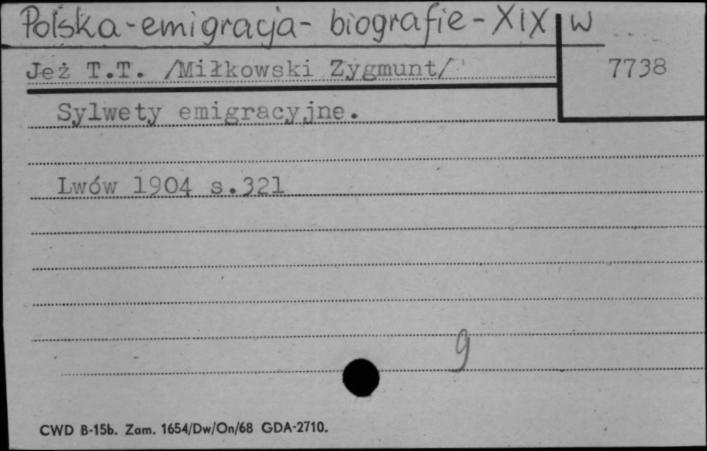 Polska-emigracja- biografie-XIX w
Jeż T.T. /Miłkowski Zygmunt/ 7738
Sylwety emigracyjne.
Lwów 1904 s.321
9
CWD B-15b. Zam. 1654/Dw/On/68 GDA-2710.